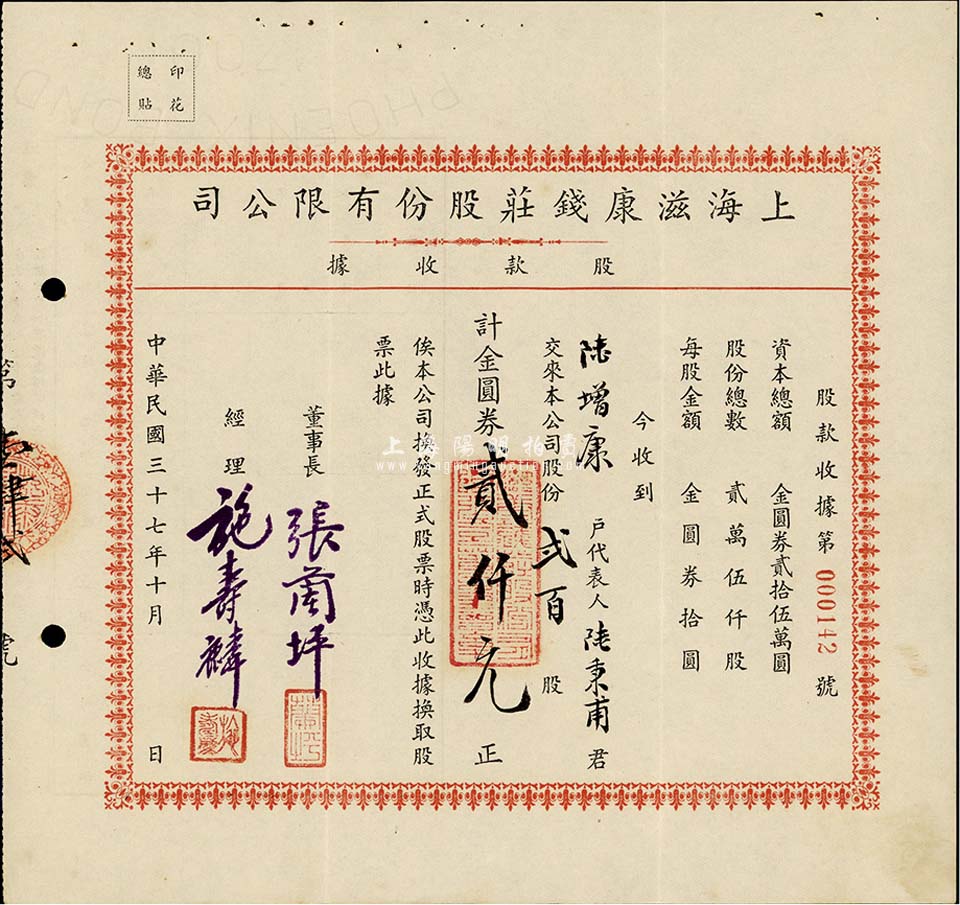 印花
總貼
上海滋康錢莊股份有限公司
股款收據
股款收據第000142號
資本總額 金圓券貳拾伍萬圓
股份總數 貳萬伍仟股
每股金額 金圓券拾圓
今收到
陸增康 戶代表人 陸秉甫 君
交來本公司股份 弐百 股
計金圓券貳仟元正
俟本公司換發正式股票時憑此收據換取股
票此據
董事長 張蘭坪
經理 施壽麟
中華民國三十七年十月 日
第
號
上海陽明拍賣